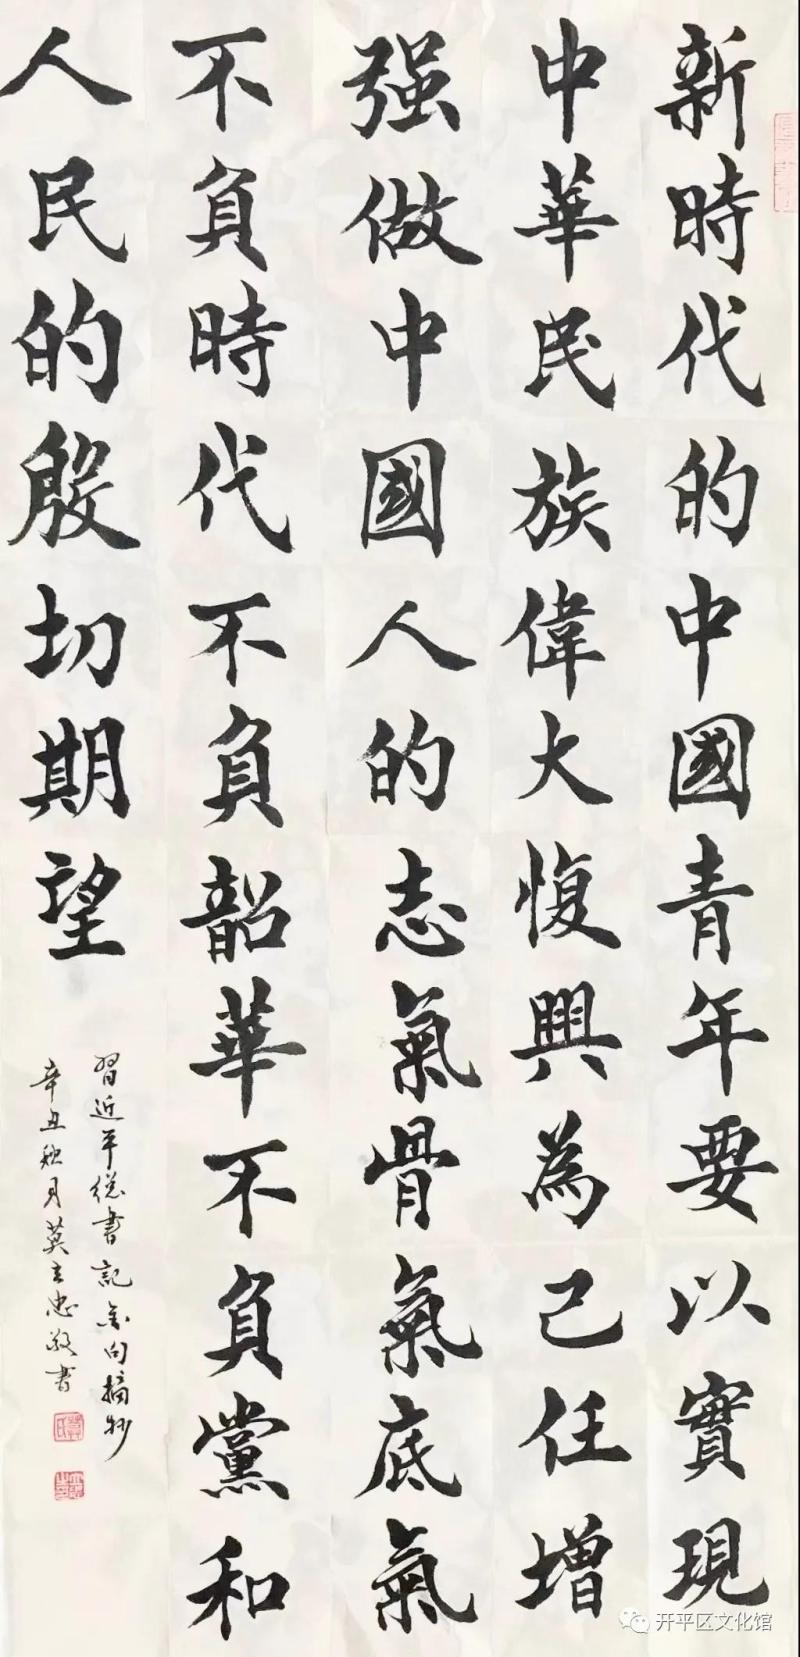 新時代的中國青年要以實現
中華民族偉大復興為己任增
强做中國人的志氣骨氣底氣
不負時代不負韶華不負黨和
人民的殷切期望
習近平總書記金句摘抄
辛丑秋月莫立忠敬書
开平区文化馆